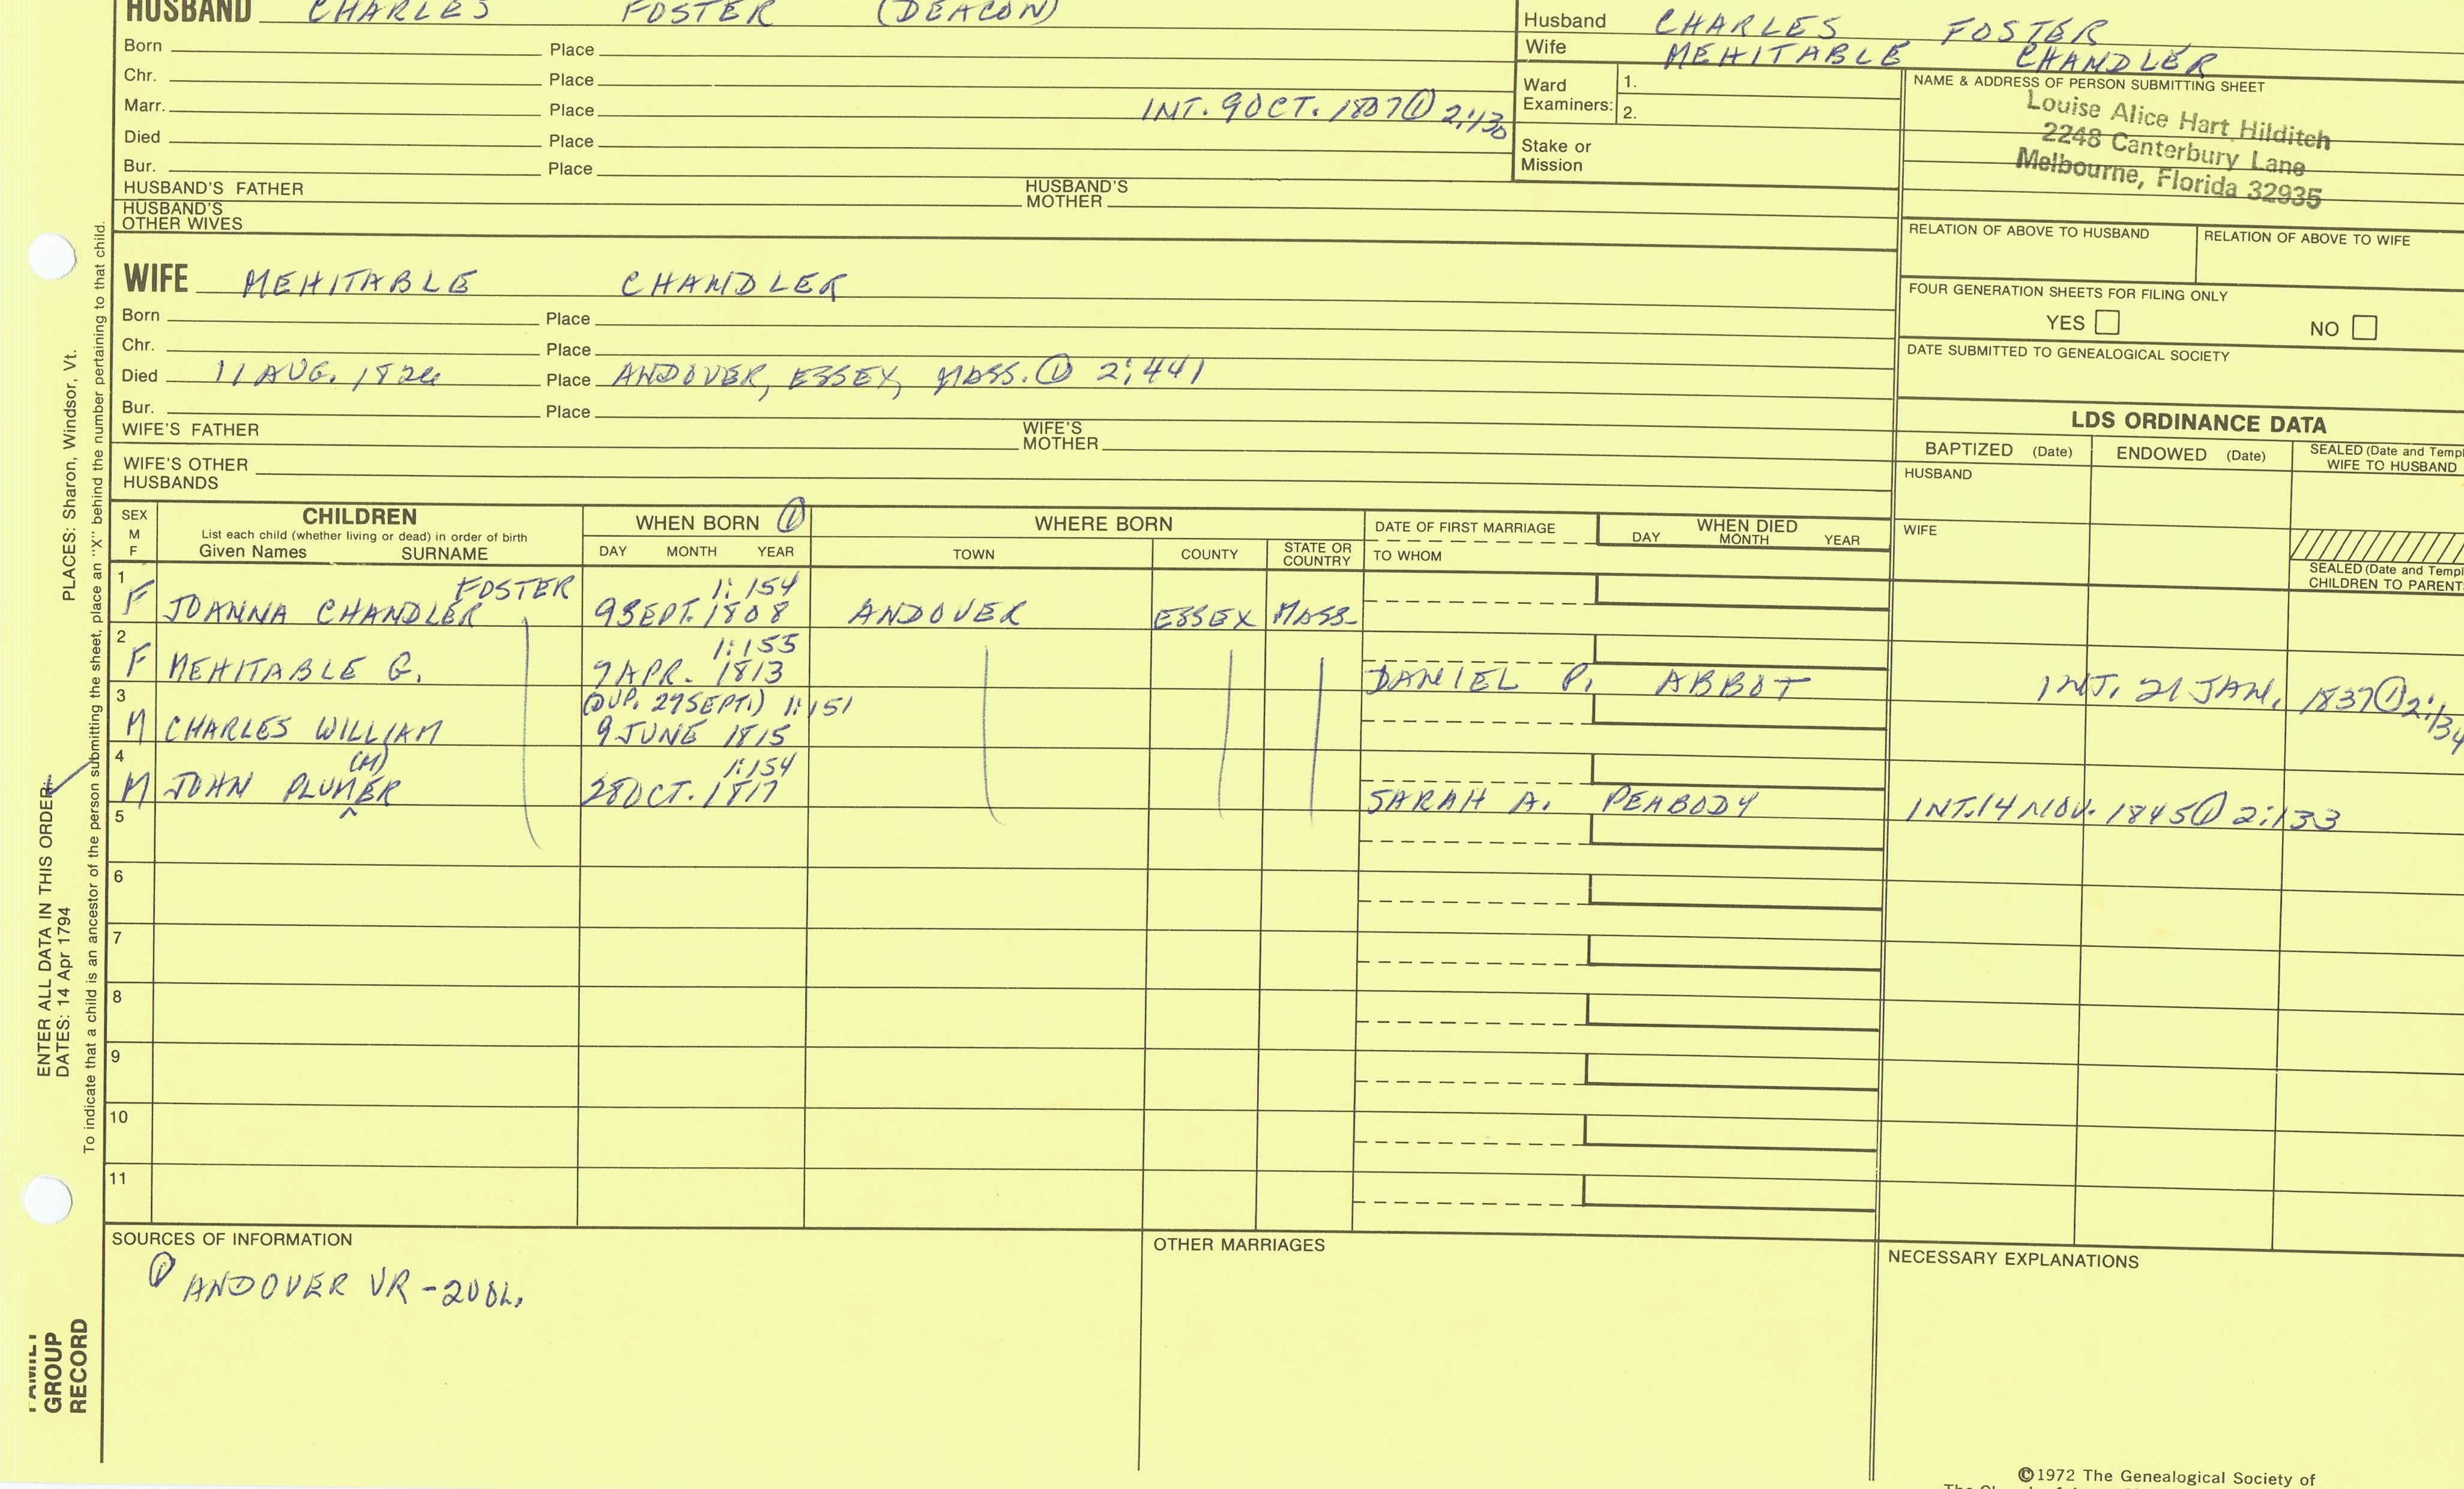 HUSBAND CHARLES FOSTER (DEACON)
Born Place
Chr. Place
Marr. Place INT. 9 OCT. 1807 ① 2:130
Died Place
Bur. Place
HUSBAND'S FATHER HUSBAND'S MOTHER
HUSBAND'S OTHER WIVES
Husband CHARLES FOSTER
Wife MEHITABLE CHANDLER
Ward Examiners: 1.
2.
Stake or Mission
NAME & ADDRESS OF PERSON SUBMITTING SHEET
Louise Alice Hart Hilditch
2248 Canterbury Lane
Melbourne, Florida 32935
RELATION OF ABOVE TO HUSBAND RELATION OF ABOVE TO WIFE
FOUR GENERATION SHEETS FOR FILING ONLY
YES NO
DATE SUBMITTED TO GENEALOGICAL SOCIETY
WIFE MEHITABLE CHANDLER
Born Place
Chr. Place
Died 11 AUG. Place ANDOVER, ESSEX, MASS. ① 2:441
Bur. Place
WIFE'S FATHER WIFE'S MOTHER
WIFE'S OTHER HUSBANDS
LDS ORDINANCE DATA
BAPTIZED (Date) ENDOWED (Date) SEALED (Date and Templ
WIFE TO HUSBAND
HUSBAND
WIFE
SEALED (Date and Templ
CHILDREN TO PARENT
SEX M F
CHILDREN
List each child (whether living or dead) in order of birth
Given Names SURNAME
WHEN BORN ①
DAY MONTH YEAR
WHERE BORN
TOWN COUNTY STATE OR COUNTRY
DATE OF FIRST MARRIAGE
TO WHOM
WHEN DIED
DAY MONTH YEAR
1 FOSTER 1:154
F JOANNA CHANDLER 9 SEPT. 1808 ANDOVER ESSEX MASS.
2 1:155
F MEHITABLE G. 7 APR. 1813 DANIEL P. ABBOT INT. 21 JAN. 1837 ① 2:134
3 (DUP. 27 SEPT.) 1:151
M CHARLES WILLIAM 9 JUNE 1815
4 (M) 1:154
M JOHN PLUMER 28 OCT. 1817 SARAH A. PEABODY INT. 14 NOV. 1845 ① 2:133
5
6
7
8
9
10
11
SOURCES OF INFORMATION
① ANDOVER VR - 2 VOL.
OTHER MARRIAGES
NECESSARY EXPLANATIONS
©1972 The Genealogical Society of
PLACES: Sharon, Windsor, Vt.
To indicate that a child is an ancestor of the person submitting the sheet, place an "X" behind the number pertaining to that child.
ENTER ALL DATA IN THIS ORDER:
DATES: 14 Apr 1794
FAMILY
GROUP
RECORD